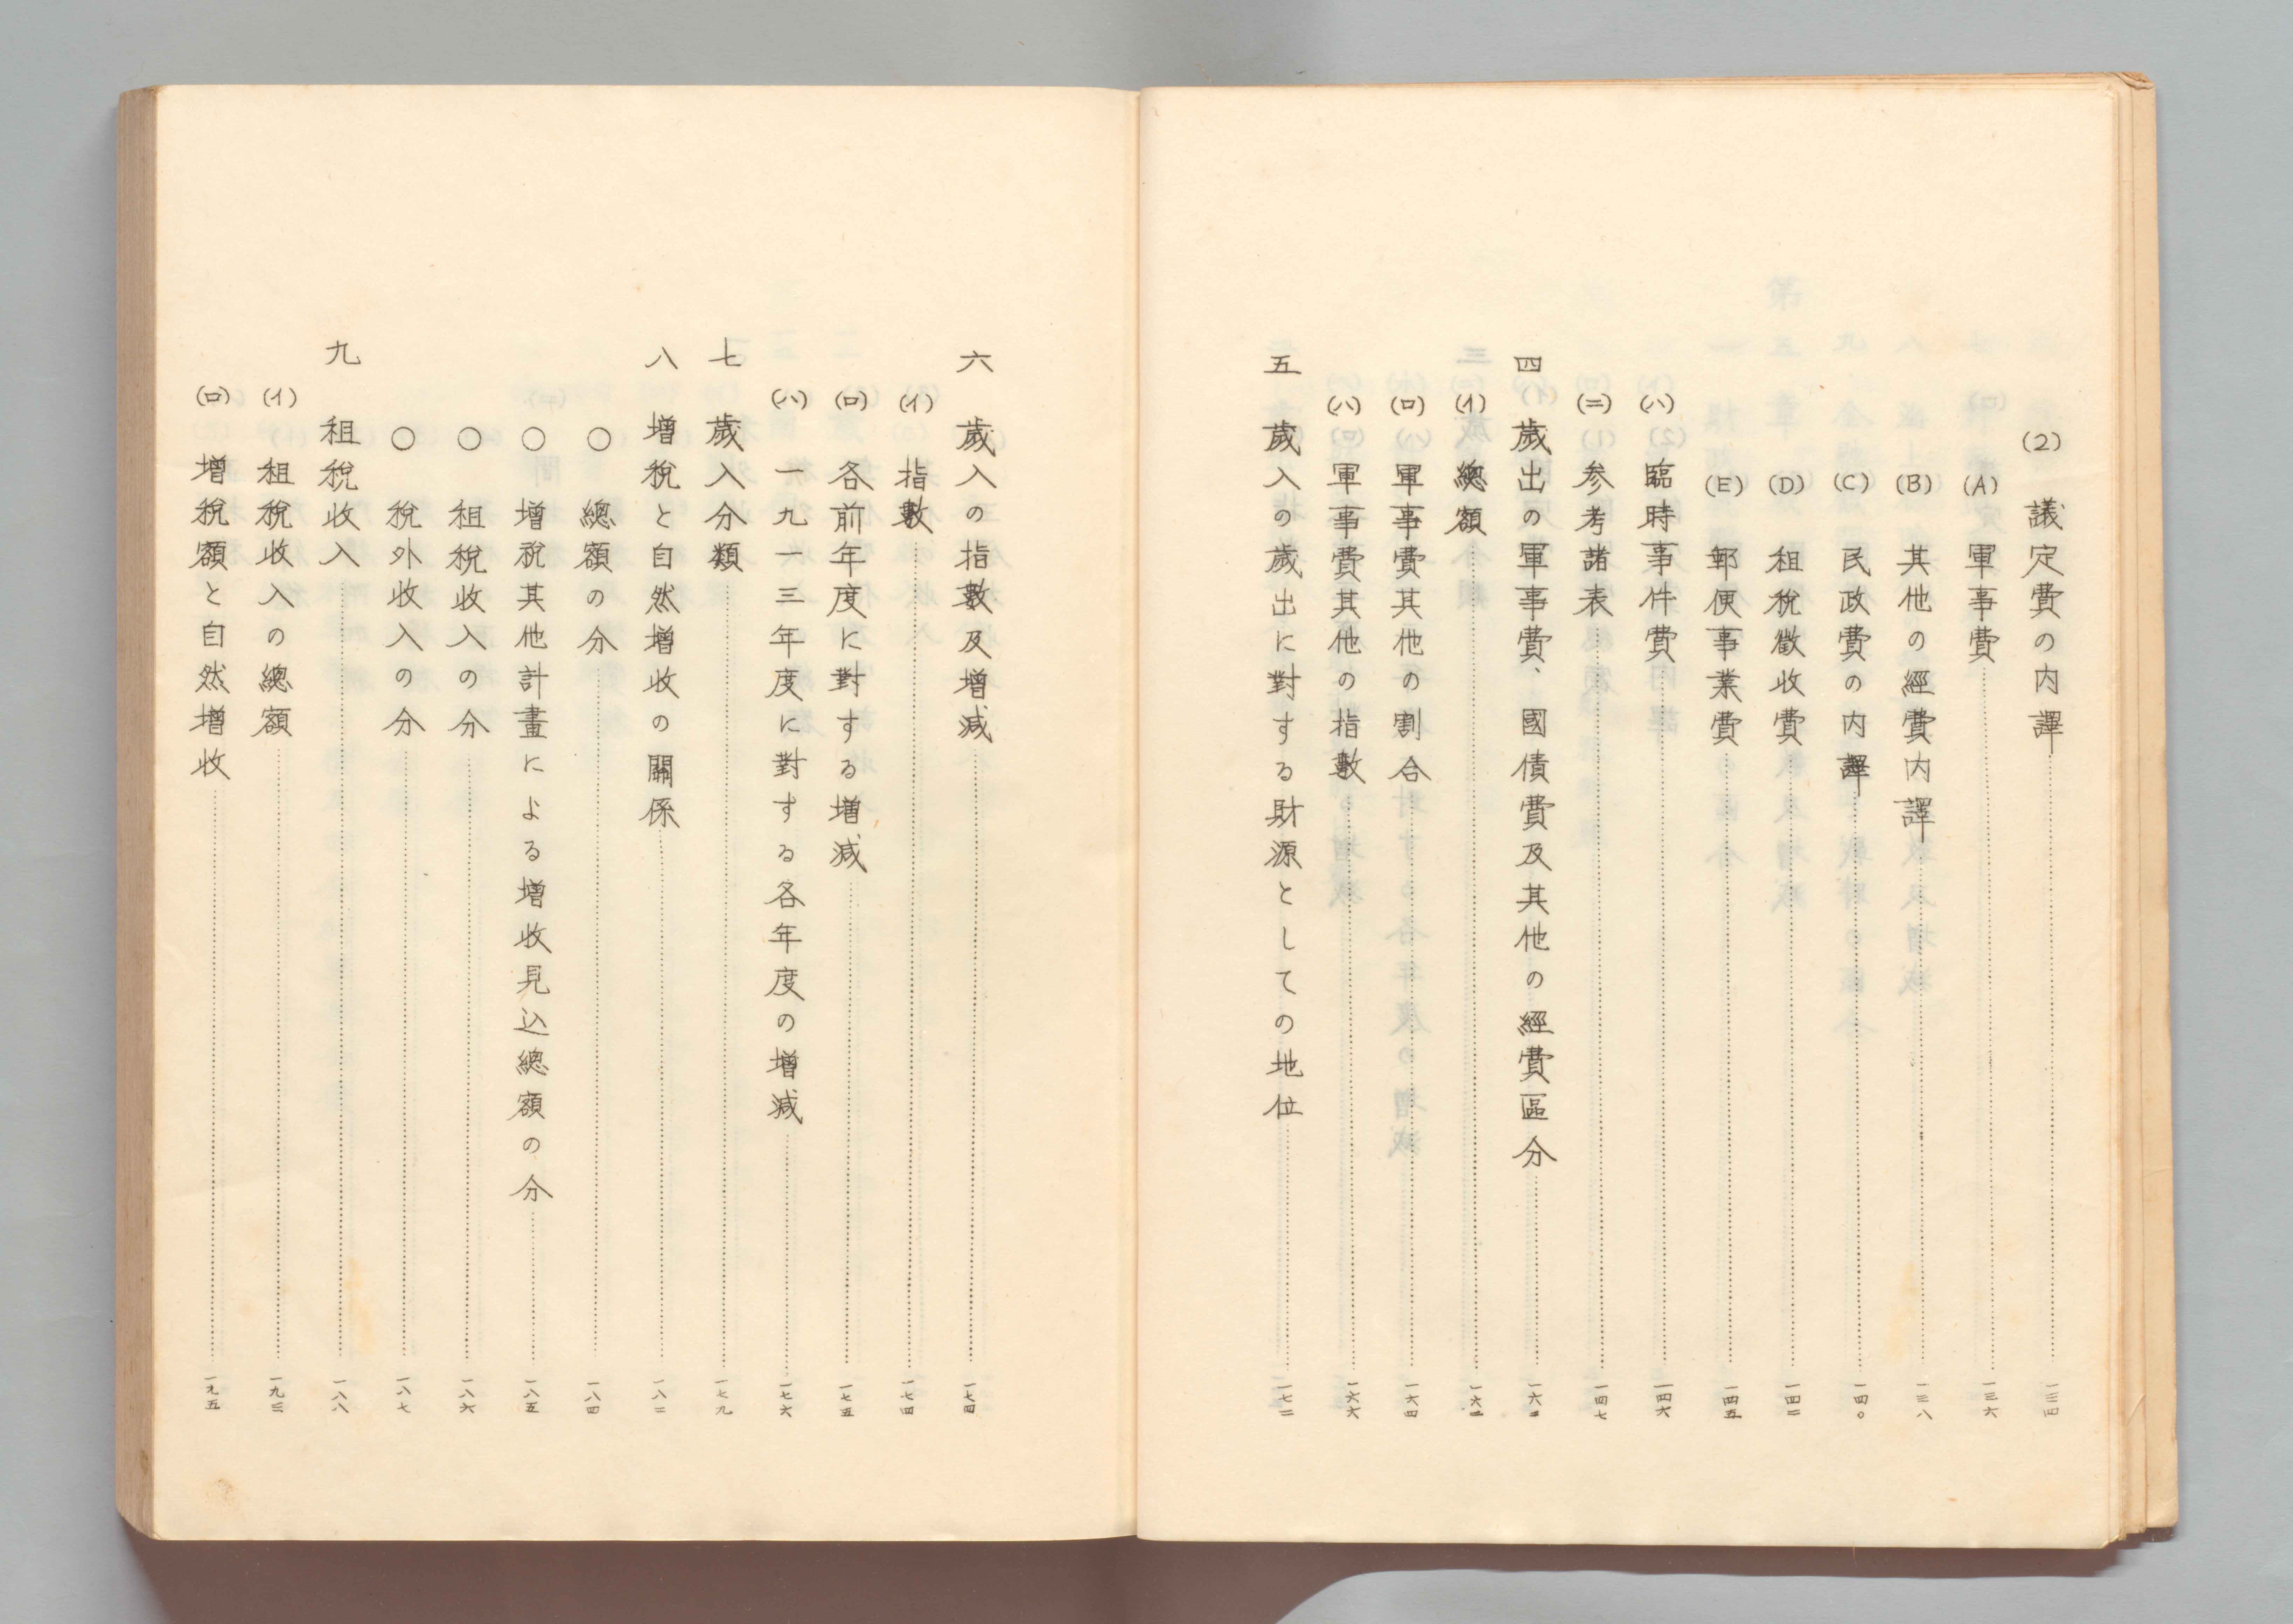 (2) 議定費の内譯 一三四
(A) 軍事費 一三六
(B) 其他の經費内譯 一三八
(C) 民政費の内譯 一四〇
(D) 租税徵收費 一四二
(E) 郵便事業費 一四五
(ハ) 臨時事件費 一四六
(ニ) 参考諸表 一四七
四 歳出の軍事費、國債費及其他の經費區分 一六二
(イ) 總額 一六二
(ロ) 軍事費其他の割合 一六四
(ハ) 軍事費其他の指數 一六六
五 歳入の歳出に對する財源としての地位 一七二
六 歳入の指數及增減 一七四
(イ) 指數 一七四
(ロ) 各前年度に對する增減 一七五
(ハ) 一九一三年度に對する各年度の增減 一七六
七 歳入分類 一七九
八 增税と自然增收の關係 一八二
○ 總額の分 一八四
○ 增税其他計畫による增收見込總額の分 一八五
○ 租税收入の分 一八六
○ 税外收入の分 一八七
九 租税收入 一八八
(イ) 租税收入の總額 一九三
(ロ) 增税額と自然增收 一九五